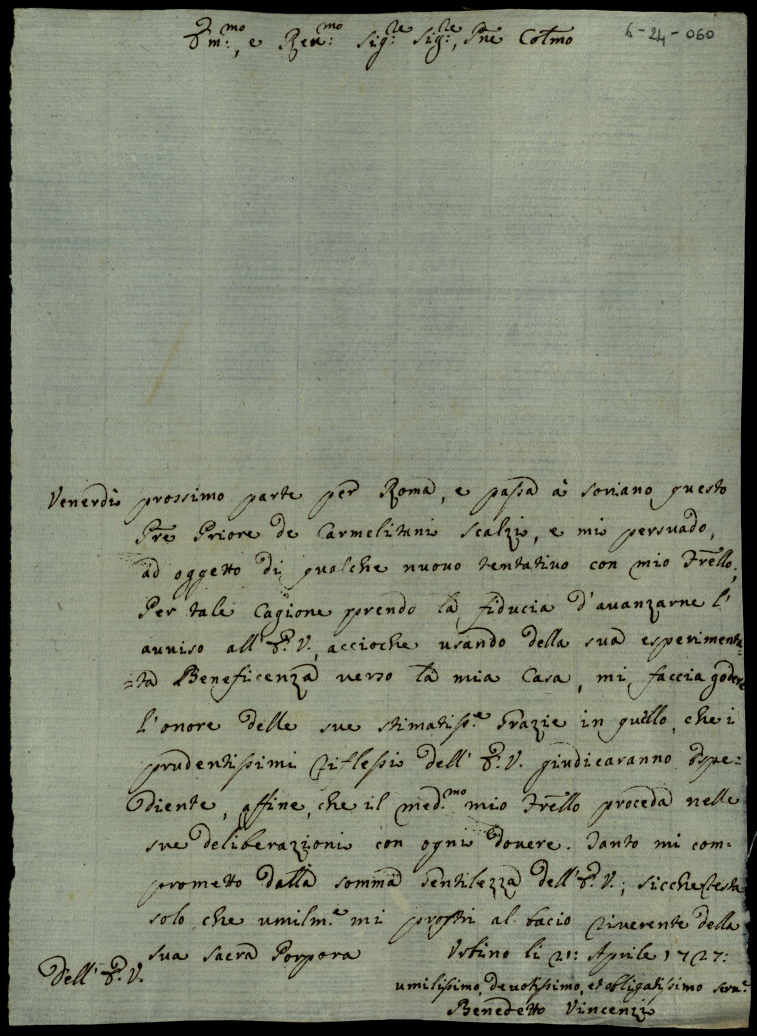 Em:mo, e Reu:mo Sig:re Sig:re, Pne Colmo
6-24-060
Venerdì prossimo parte per Roma, e passa à Soriano questo
Pre Priore de Carmelitani Scalzi, e mi persuado,
ad oggetto di qualche nuovo tentativo con mio Frello.
Per tale Cagione prendo la fiducia d'auanzarne l'
auuiso all'E:V., accioche usando della sua esperimenta
=ta Beneficenza uerso la mia Casa, mi faccia godere
l'onore delle sue stimatiss:e Grazie in quello, che i
prudentissimi Riflessi dell'E:V. giudicaranno Espe=
diente, affine, che il med:mo mio Frello proceda nelle
sue deliberazioni con ogni douere. Tanto mi com=
prometto dalla somma Gentilezza dell'E:V.; sicche resta
solo che umilm:e mi prostri al bacio riuerente della
sua sacra Porpora
Vrbino li 21: Aprile 1727:
Dell'E:V.
umilissimo, deuotissimo, et obligatissimo seru:e
Benedetto Vincenzi